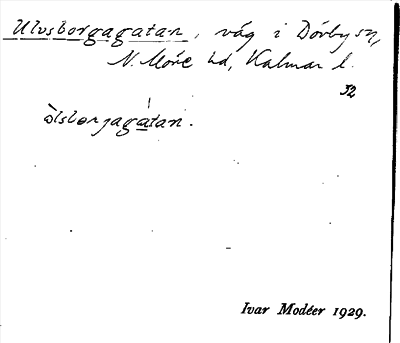 Ulvsborgagatan, väg i Dörby sn,
N. Möre hd, Kalmar l.
32
òlsbɷrjagàtan.
Ivar Modéer 1929.